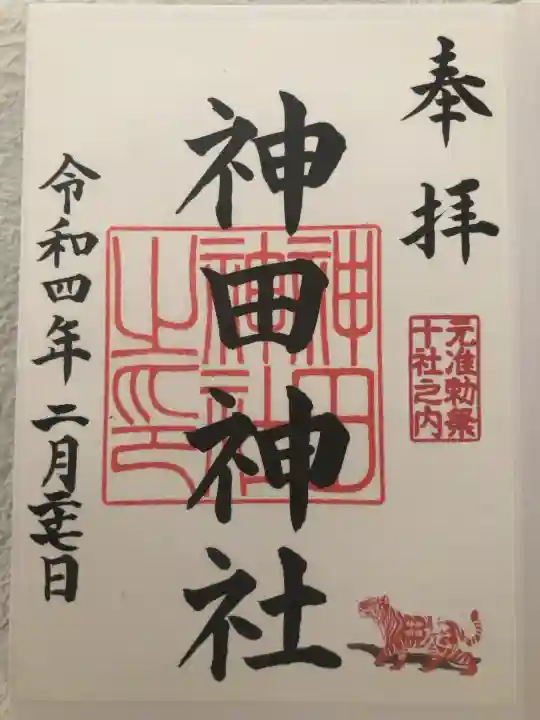 奉拝
元准勅祭
十社之内
神田神社
神田
神社
之印
令和四年二月二十七日